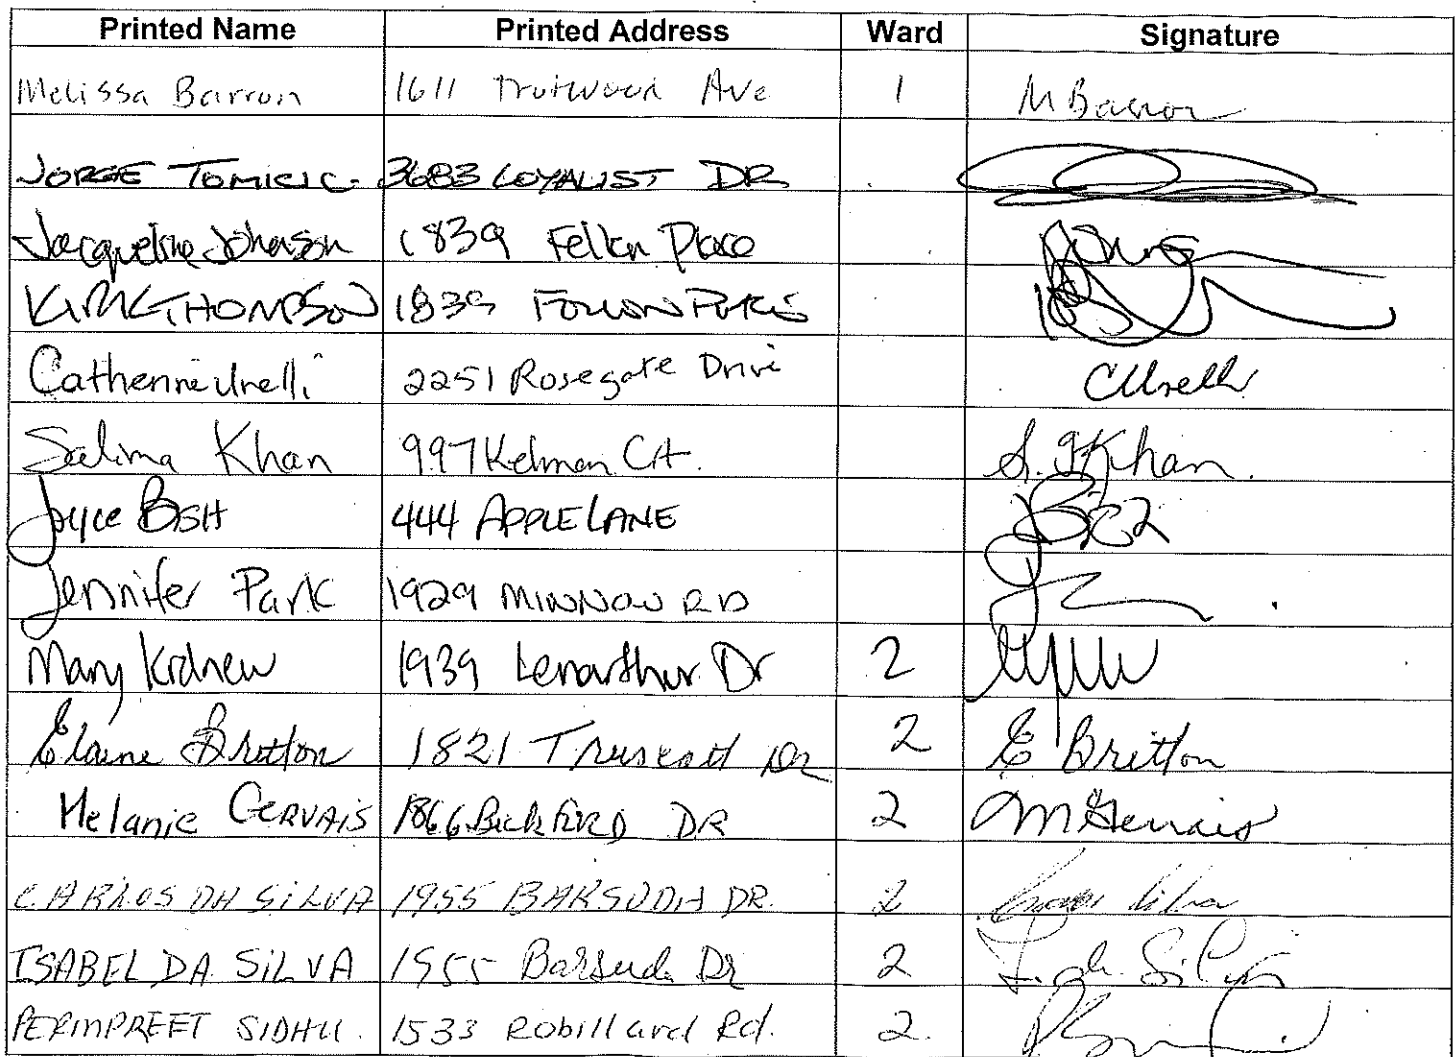 Printed Name Printed Address Ward Signature
Melissa Barron 1611 Trotwood Ave 1 M Barron
JORGE TOMICIC 3683 LOYALIST DR
Jacqueline Johnson 1839 Fellen Place
KIRK THOMPSON 1839
Catherine Urelli 2251 Rosegate Drive CUrelli
Salima Khan 997 Kelman Crt. S. Khan
Joyce BISH 444 APPLE LANE
Jennifer Park 1929 MINNOW RD
Mary 1939 Lenarthur Dr 2
Elaine Britton 1821 Truscott Dr 2 E Britton
Melanie GERVAIS 1866 BickFORD DR 2 M Gervais
CARLOS DA SILVA 1955 BARSUDA DR. 2 Silva
ISABEL DA SILVA 1955 Barsuda Dr 2 Silva
PERMPREET SIDHU. 1533 Robillard Rd. 2.